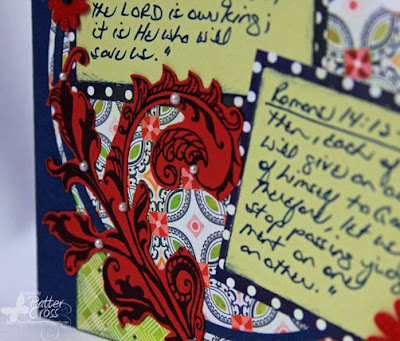 the LORD is our king;
it is He who will
save us."
Romans 14:12-
then, each of
will give an ac
of himself to G
Therefore, let us
stop passing judg
ment on one
another."
Patter
Cross